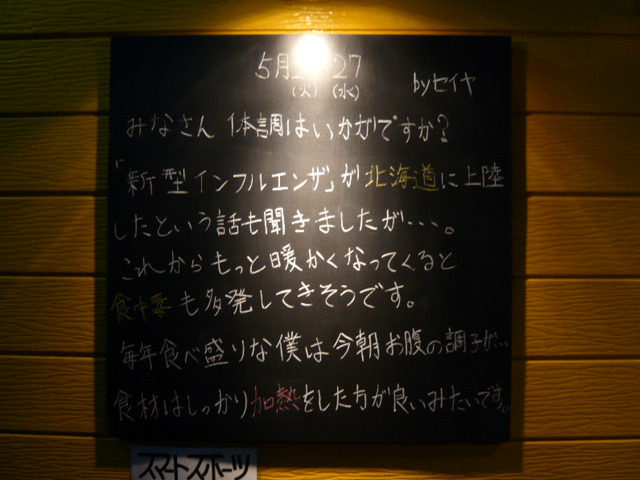 5月 27
(火) (水)
byセイヤ
みなさん 体調はいかがですか?
「新型インフルエンザ」が北海道に上陸
したという話も聞きましたが・・・。
これからもっと暖かくなってくると
食中毒も多発してきそうです。
毎年食べ盛りな僕は今朝お腹の調子が‥
食材はしっかり加熱をした方が良いみたいです。
スマートスポーツ